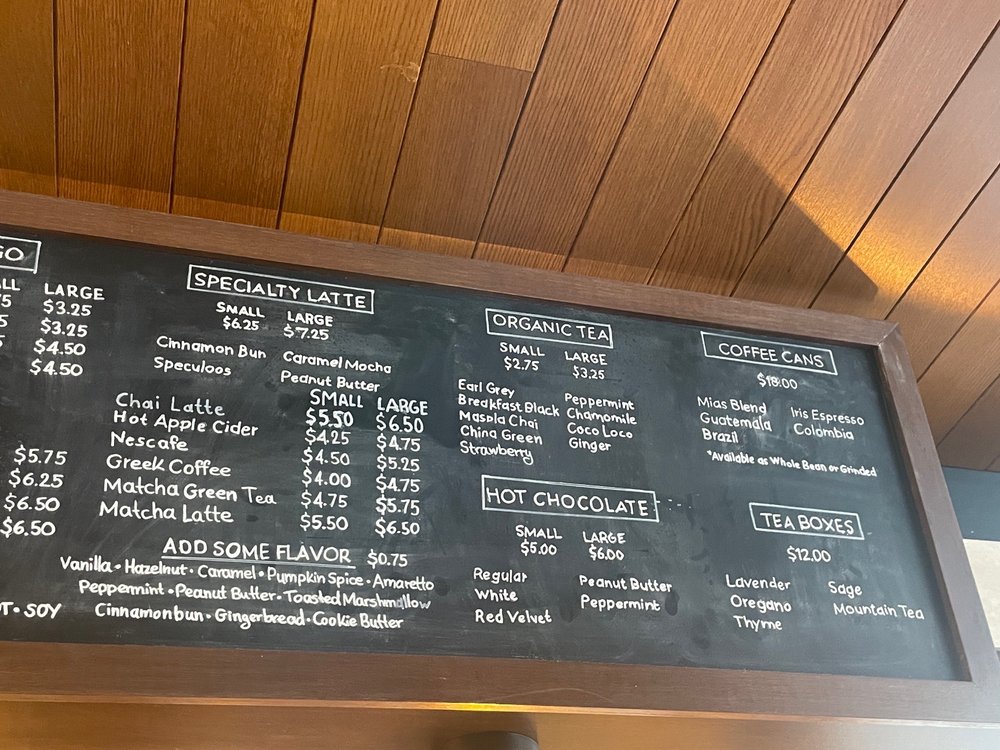 GO
LL LARGE
5 $3.25
5 $3.25
$4.50
$4.50
$5.75
$6.25
$6.50
$6.50
T • SOY
SPECIALTY LATTE
SMALL LARGE
$6.25 $7.25
Cinnamon Bun Caramel Mocha
Speculoos Peanut Butter
SMALL LARGE
Chai Latte $5.50 $6.50
Hot Apple Cider $4.25 $4.75
Nescafe $4.50 $5.25
Greek Coffee $4.00 $4.75
Matcha Green Tea $4.75 $5.75
Matcha Latte $5.50 $6.50
ADD SOME FLAVOR $0.75
Vanilla • Hazelnut • Caramel • Pumpkin Spice • Amaretto
Peppermint • Peanut Butter • Toasted Marshmallow
Cinnamonbun • Gingerbread • Cookie Butter
ORGANIC TEA
SMALL LARGE
$2.75 $3.25
Earl Grey Peppermint
Breakfast Black Chamomile
Masala Chai Coco Loco
China Green Ginger
Strawberry
HOT CHOCOLATE
SMALL LARGE
$5.00 $6.00
Regular Peanut Butter
White Peppermint
Red Velvet
COFFEE CANS
$18.00
Mias Blend Iris Espresso
Guatemala Colombia
Brazil
*Available as Whole Bean or Grinded
TEA BOXES
$12.00
Lavender Sage
Oregano Mountain Tea
Thyme